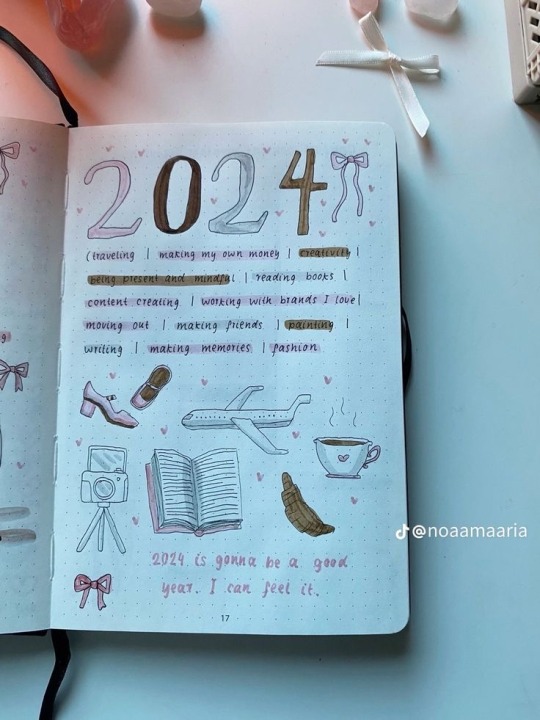 2024
(traveling | making my own money | creativity
being present and mindful | reading books |
content creating | working with brands I love|
moving out | making friends | painting |
writing | making memories | fashion
@noaamaaria
2024 is gonna be a good
year. I can feel it.
17